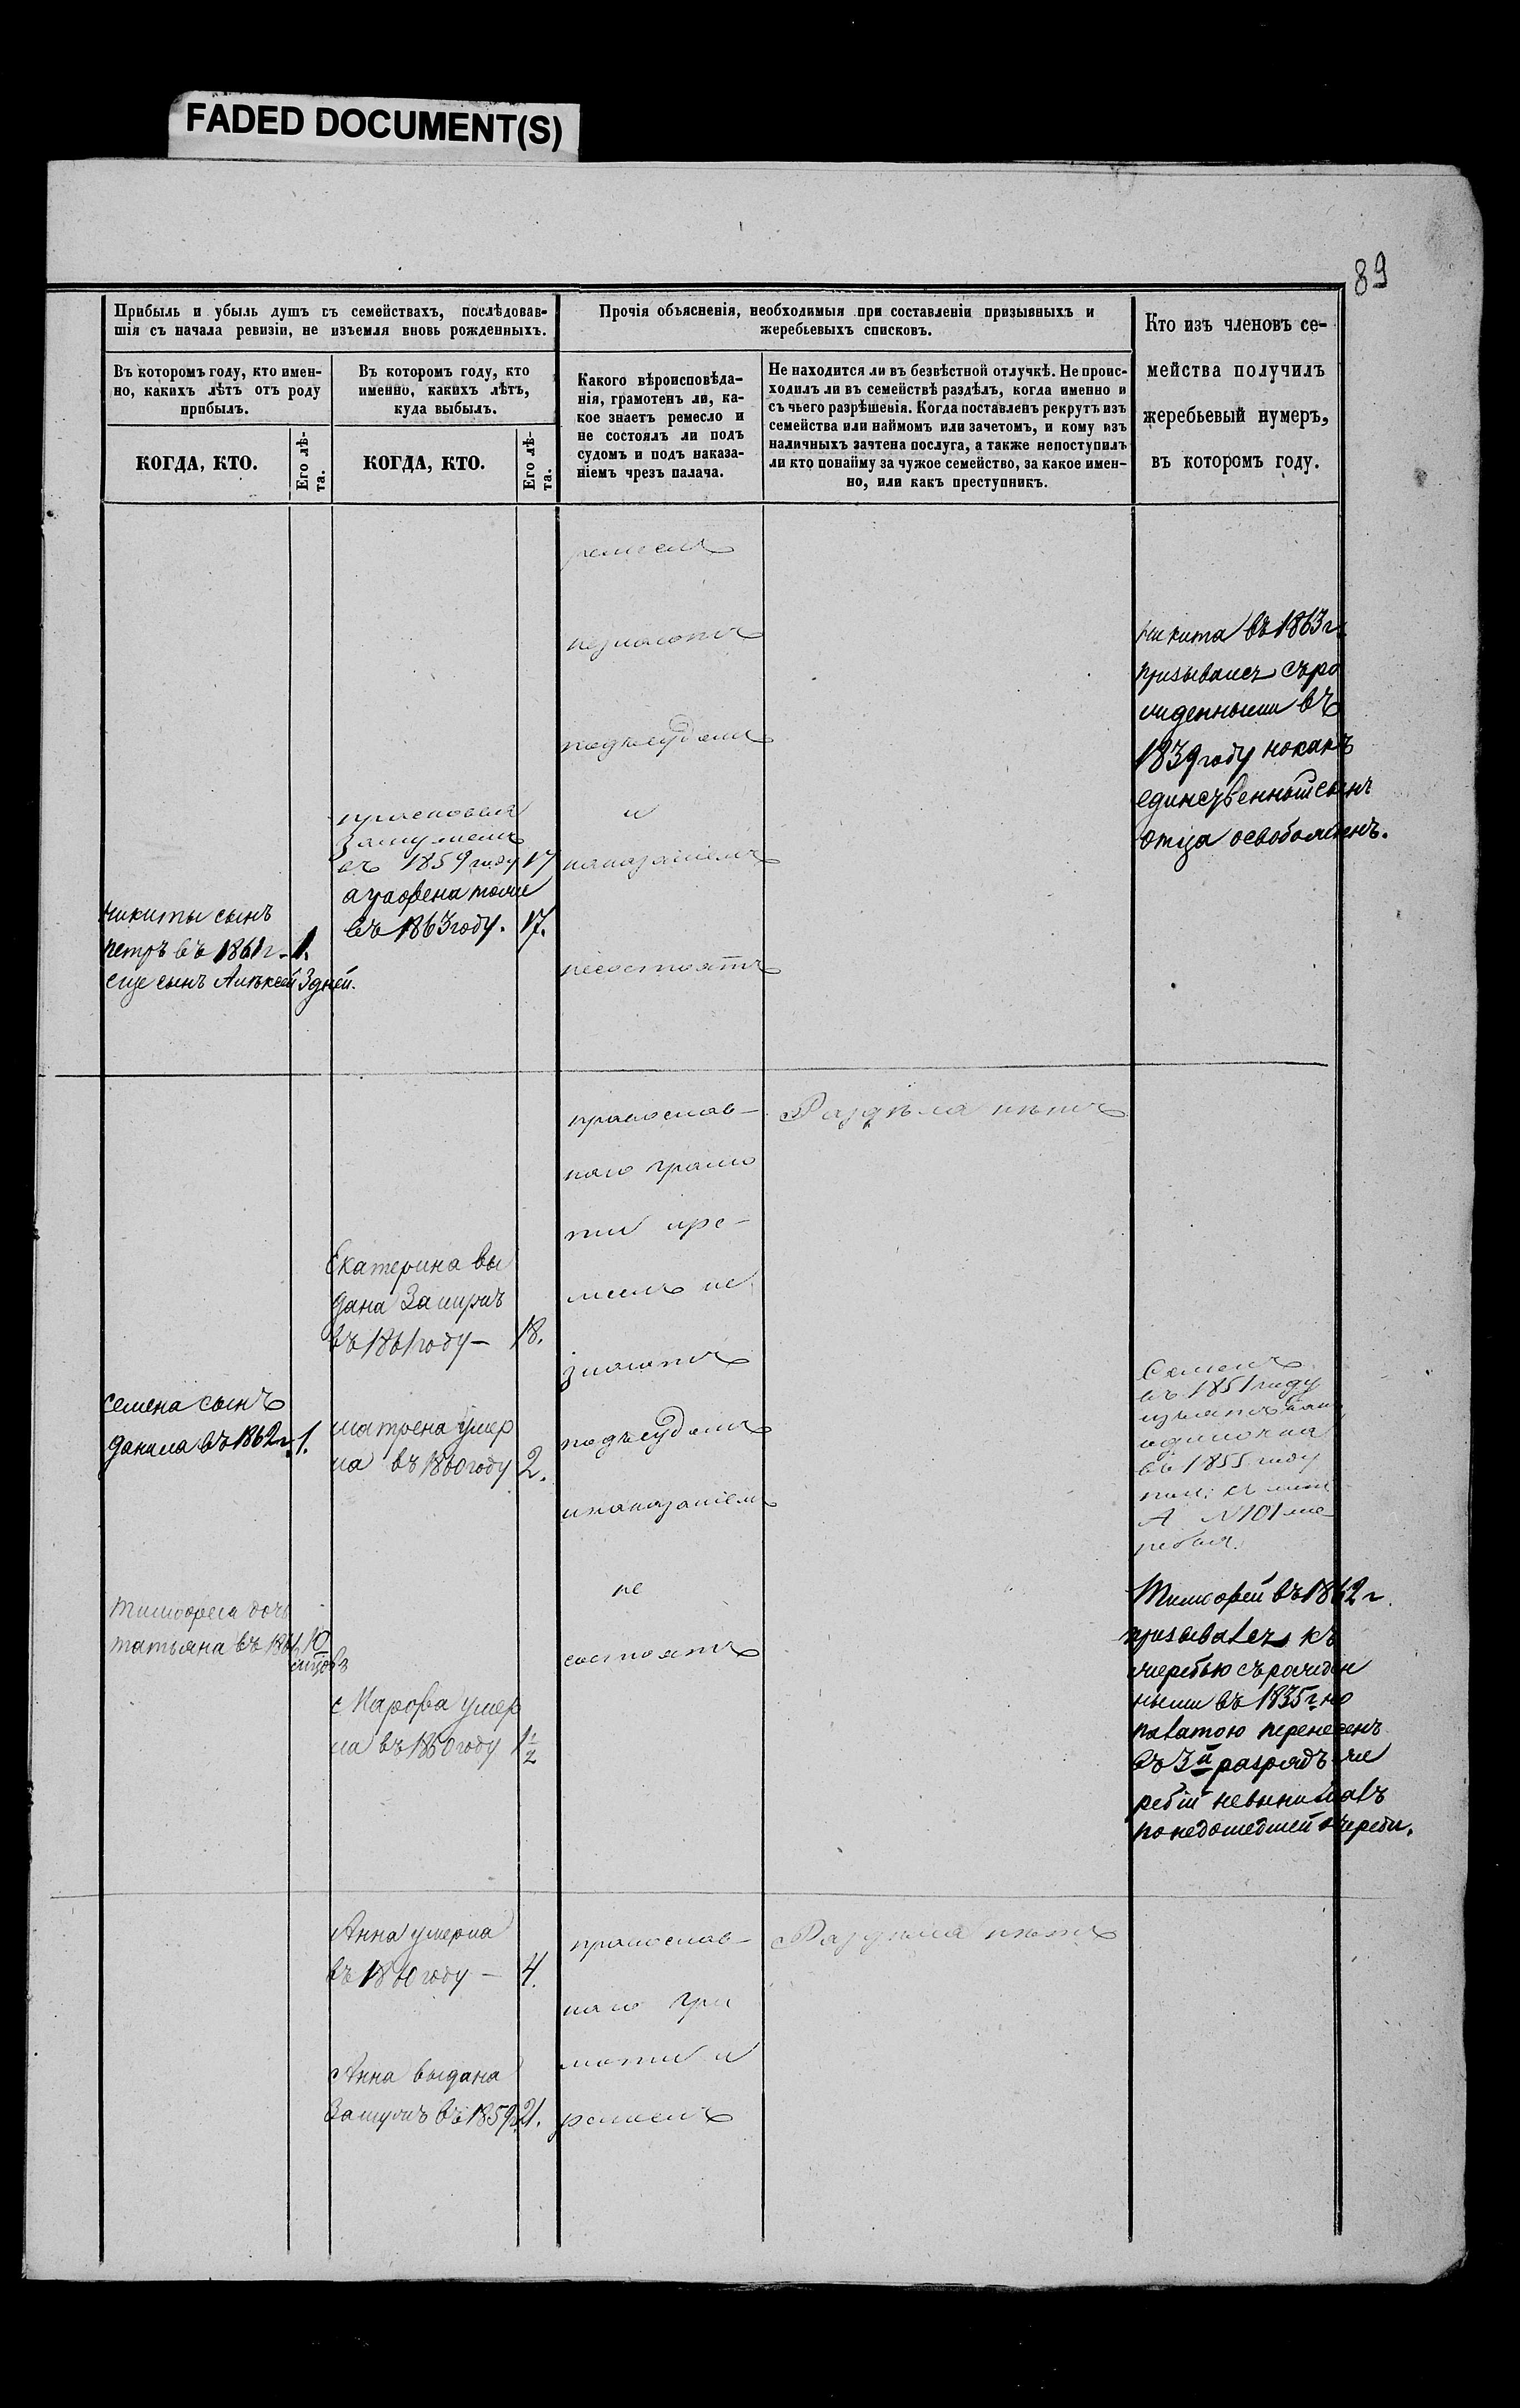 FADED DOCUMENT(S)
89
Прибыль и убыль душъ въ семействахъ, послѣдовав-
шія съ начала ревизіи, не изъемля вновь рожденныхъ.
Прочія объясненія, необходимыя при составленіи призывныхъ и
жеребьевыхъ списковъ.
Кто изъ членовъ се-
мейства получилъ
жеребьевый нумеръ,
въ которомъ году.
Въ которомъ году, кто имен-
но, какихъ лѣтъ отъ роду
прибылъ.
Въ которомъ году, кто
именно, какихъ лѣтъ,
куда выбылъ.
Какого вѣроисповѣда-
нія, грамотенъ ли, ка-
кое знаетъ ремесло и
не состоялъ ли подъ
судомъ и подъ наказа-
ніемъ чрезъ палача.
Не находится ли въ безвѣстной отлучкѣ. Не проис-
ходилъ ли въ семействѣ раздѣлъ, когда именно и
съ чьего разрѣшенія. Когда поставленъ рекрутъ изъ
семейства или наймомъ или зачетомъ, и кому изъ
наличныхъ зачтена послуга, а также непоступилъ
ли кто понайму за чужое семейство, за какое имен-
но, или какъ преступникъ.
КОГДА, КТО.
Его лѣ-
та.
КОГДА, КТО.
Его лѣ-
та.
никиты сынъ
петръ въ 1861 г. 1.
еще сынъ Алѣксей 3 дней.
прасковья
замужемъ
въ 1859 году 17
а графена тоже
въ 1863 году. 17.
ремеслъ
незнаютъ
подъсудомъ
и
наказаніемъ
несостоятъ
никита въ 1863 г.
призывался съро
жденными въ
1839 году нокакъ
единственный сынъ
отца освобожденъ.
семена сынъ
данила въ 1862 г. 1.
Тимофея дочь
татьяна въ 1861 10
Екатерина вы
дана Замужъ
въ 1861 году — 18.
матрена умер
ла въ 1860 году 2.
Марфа умер
ла въ 1860 году 1 1/2
православ-
наго грамо
ты ире-
меслъ не
знаютъ
подъсудомъ
инаказаніемъ
не
состоятъ
Раздѣла нѣтъ
Семенъ
въ 1851 году
изъятъ как
одиночка
въ 1855 году
А N 101 же
ребья.
Тимофей въ 1862 г.
призывался къ
жеребью съ рожден
ными въ 1835 г. но
палатою перенесенъ
въ 3й разрядъ же
ребій невынималъ
понедошедшей очереди.
Анна умерла
въ 1860 году — 4.
Анна выдана
Замужъ въ 1859 г. 21.
православ-
наго гра
моты и
ремеслъ
Раздѣла нѣтъ